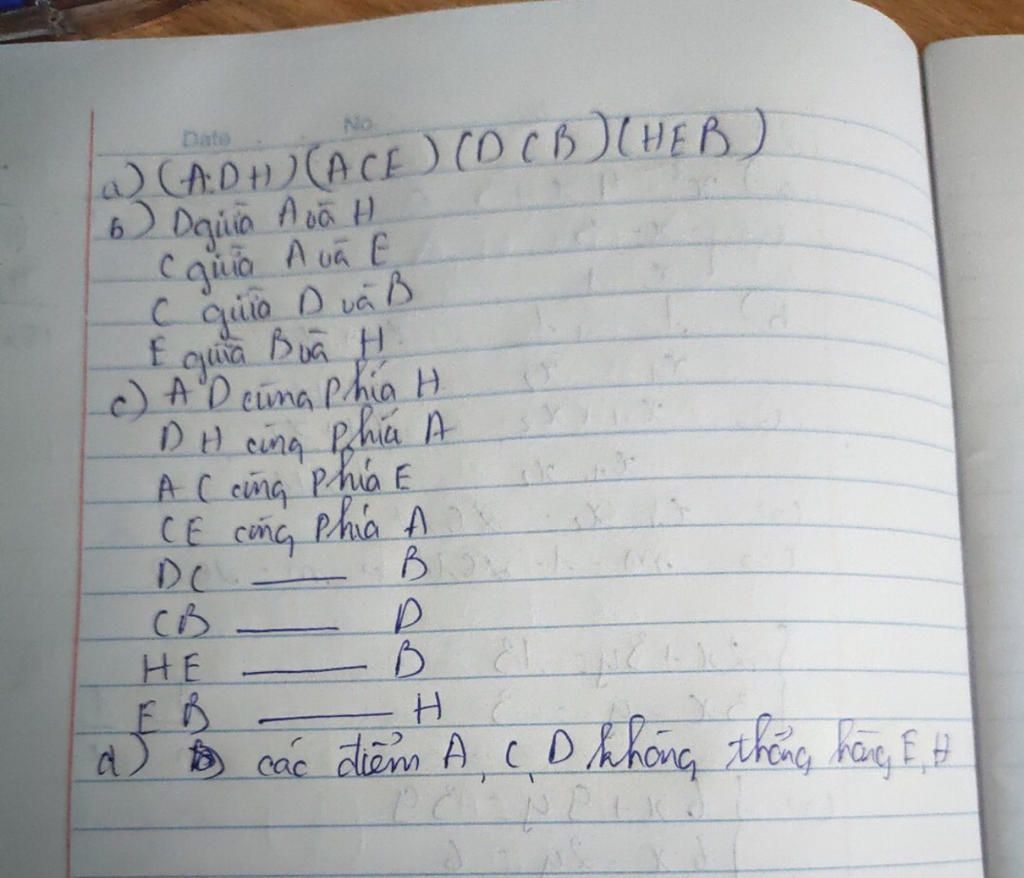 Date No.
a) (A.DH) (ACE) (DCB) (HEB)
b) D giữa A và H
C giữa A và E
C giữa D và B
E giữa B và H
c) A D cùng phía H
D H cùng phía A
A C cùng phía E
CE cùng phía A
DC —— B
CB —— D
HE —— B
E B —— H
d) các điểm A, C, D không thẳng hàng E, H